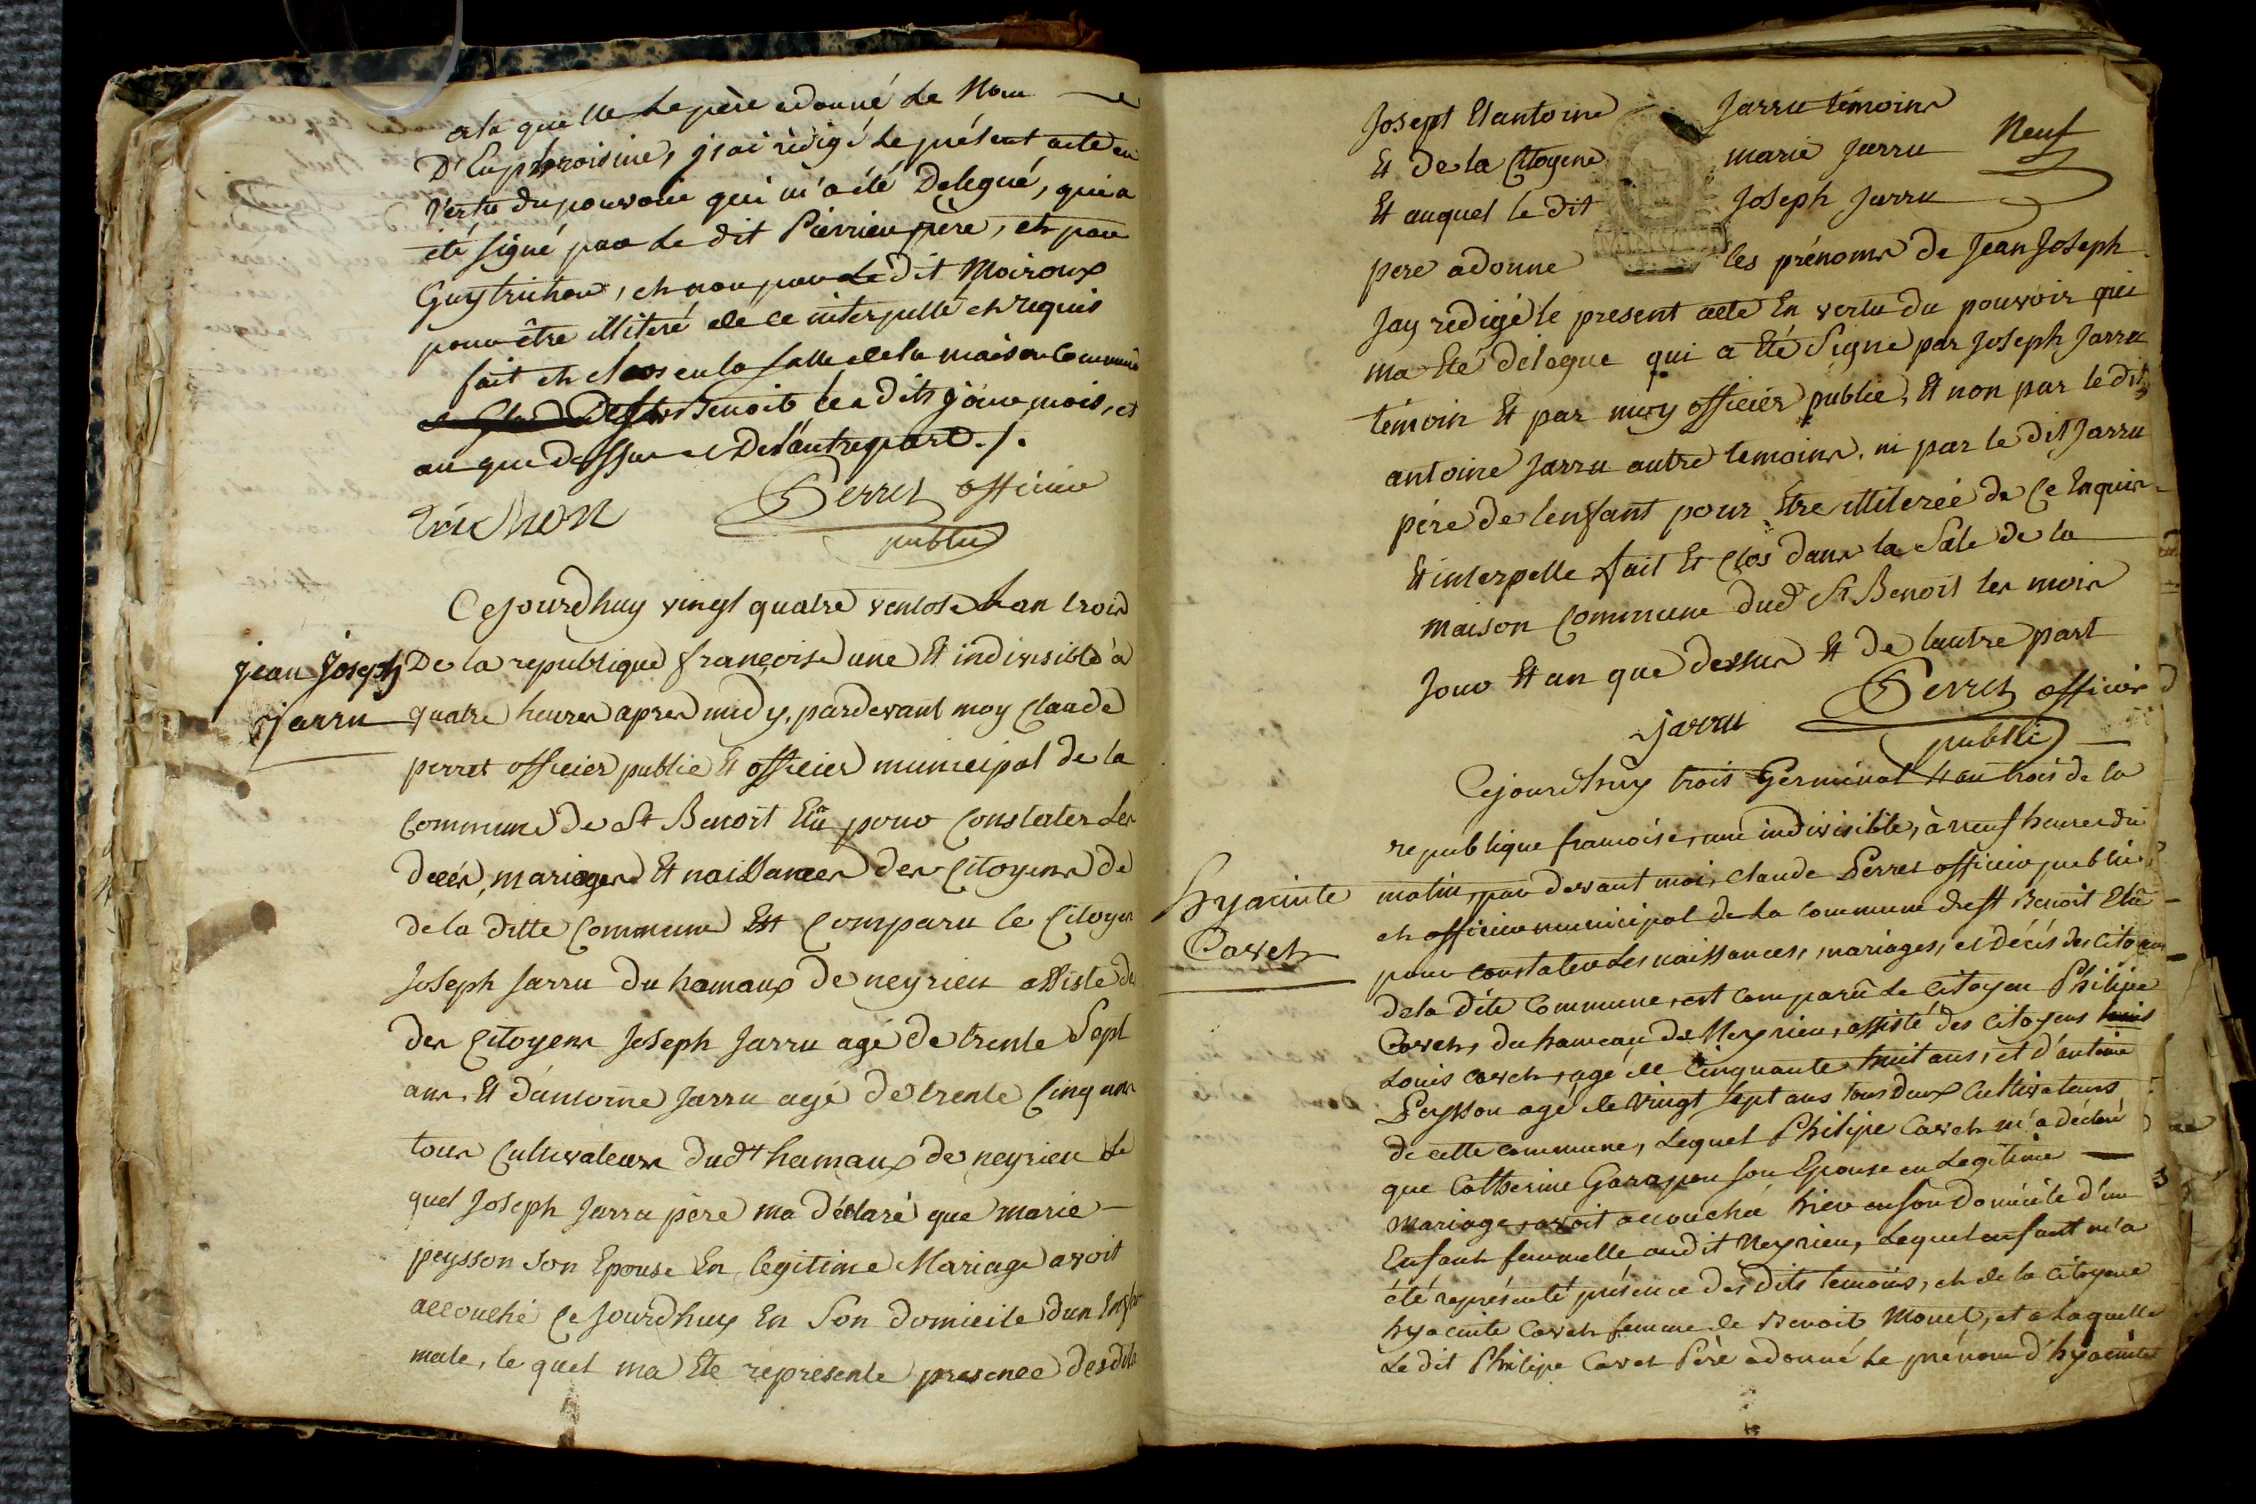 a la quelle le père a donné le Nom
D'Euphroisine, j'ai rédigé le présent acte en
vertu du pouvoir qui m'a été Delegué, qui a
été signé par le dit Pierrieu père, et par
Guy trichon, et non par le dit Moiroux
pour être illiteré de ce interpellé et requis
fait et clos en la salle de la maison Commune
Benoit les dits jour mois, et
an que dessus et De l'autre part ./.
trichon
Perret officier
public
Cejourdhuy vingt quatre ventose Lan trois
jean Joseph
jarru
De la republique françoise une Et indivisible à
quatre heures apres midy, pardevant moy Claude
perret officier public Et officier municipal de la
Commune de St Benoit Elû pour Constater Les
décès, mariages Et naissances des Citoyens de
de la ditte Commune Est Comparu le Citoyen
Joseph Jarru du hamaux de neyrieu assiste de
des Citoyens Joseph Jarru agé de trente Sept
ans. Et d'antoine Jarru agé de trente Cinq ans
tous Cultivateurs dudt hamaux de neyrieu Le
quel Joseph Jarru père ma déclaré que marie
peysson son Epouse En legitime Mariage avoit
accouché Ce Jourdhuy En Son domicile dun Enfant
male, le quel ma Ete représenté présence desdits
Josept Et antoine Jarru témoins
Neuf
Et de la Citoyene marie Jarru
Et auquel le dit Joseph Jarru
pere a donne les prénoms de Jean Joseph
Jay redigé le present acte En vertu du pouvoir qui
ma Eté délegue qui a Eté Signé par Joseph Jarru
témoin Et par moy officier public, Et non par le dit
antoine Jarru autre temoins. ni par le dit Jarru
père de lenfant pour Etre illiterée de Ce Enquis
Et interpelle fait Et Clos dans la Sale de la
maison Commune dud St Benoit les mois
Jour Et an que dessus Et de lautre part
jarru
Perret officier
public
Cejourd'huy trois Germinal Lan trois de la
republique francoise, une indivisible, à neuf heures du
hyacinte
Cavet
matin, par devant moi, Claude Perret officier public
et officier municipal de la Commune de St Benoit Elû
pour constater les naissances, mariages, et décès des Citoyens
de la dite Commune, est comparû le Citoyen Philipe
Cavet, du hameau de Neyrieu, assisté des Citoyens
Louis Cavet, agé de Cinquante huit ans, et d'antoine
Peysson agé de vingt sept ans tous deux Cultivateurs
de cette commune, Lequel Philipe Cavet m'a déclaré
que Catherine Garapon son Epouse en Legitime
mariage, avoit accouché hier en son domicile d'un
Enfant femmelle au dit Neyrieu, Lequel enfant m'a
été représenté présence des dits temoins, et de la Citoyene
hyacinte Cavet femme de Benoit Monet, et a laquelle
Le dit Philipe Cavet Père a donné le prénom d'hyacinte